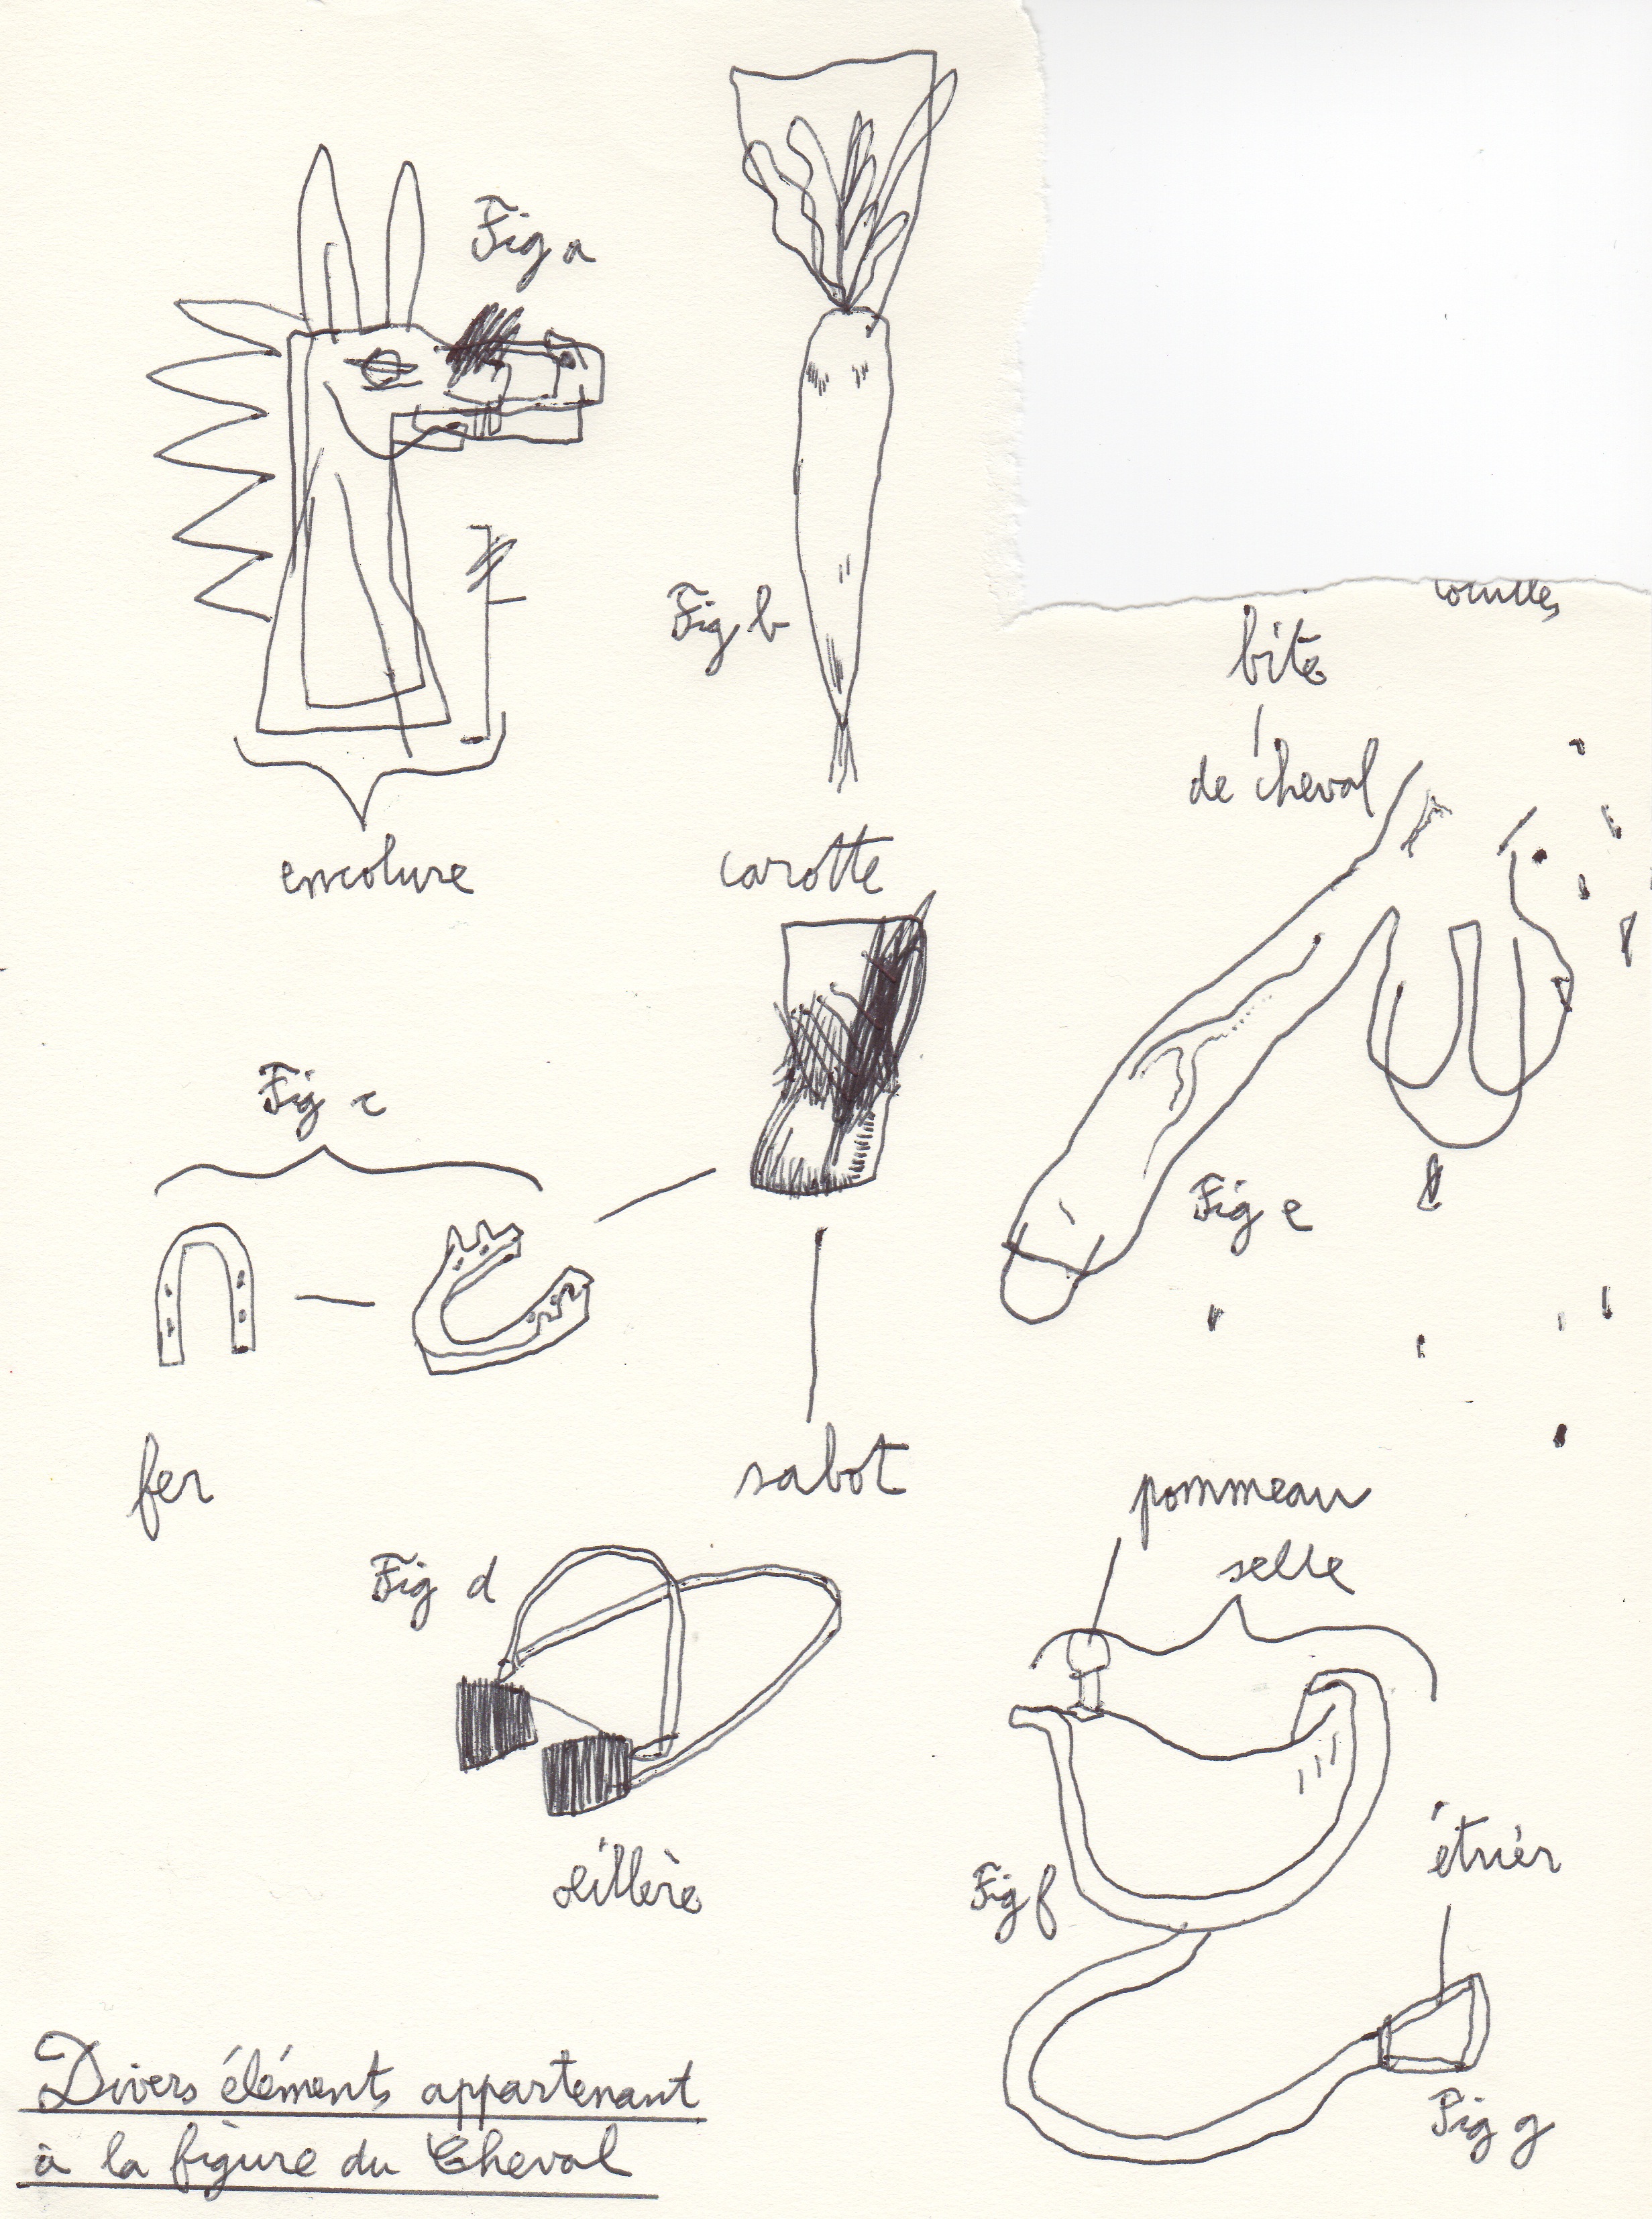 Fig a
Fig b
encolure
carotte
bite
de cheval
Fig c
Fig e
fer
sabot
Fig d
pommeau
selle
œillère
étrièr
Fig f
Fig g
Divers éléments appartenant
à la figure du Cheval